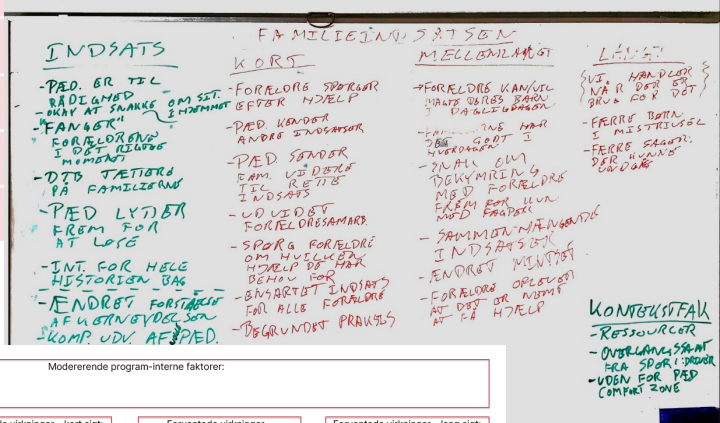 FAMILIEINDSATSEN
INDSATS
-PÆD. ER TIL
RÅDIGHED
-OKAY AT SNAKKE OM SIT.
I HJEMMET
-"FANGER"
FORÆLDRENE
I DET RIGTIGE
MOMENT
-DTB TÆTTERE
PÅ FAMILIERNE
-PÆD LYTTER
FREM FOR
AT LØSE
-INT. FOR HELE
HISTORIEN BAG
-ÆNDRET FORSTÅELSE
AF KERNEYDELSEN
-KOMP. UDV. AF PÆD.
KORT
-FORÆLDRE SPØRGER
EFTER HJÆLP
-PÆD. KENDER
ANDRE INDSATSER
-PÆD. SENDER
FAM. VIDERE
TIL RETTE
INDSATS
-UDVIDET
FORÆLDRESAMARB.
-SPØRG FORÆLDRE
OM HVILKEN
HJÆLP DE HAR
BEHOV FOR
-ENSARTET INDSATS
FOR ALLE FORÆLDRE
-BEGRUNDET PRAKSIS
MELLEMLANGT
FORÆLDRE KAN/VIL
MAGTE DERES BARN
I DAGLIGDAGEN
HAR
DET GODT I
HVERDAGEN
-SNAK OM
BEKYMRING
MED FORÆLDRE
FREM FOR KUN
MED FAGPER.
-SAMMENHÆNGENDE
INDSATSER
-ÆNDRET MINDSET
-FORÆLDRE OPLEVER
AT DET ER NEMT
AT FÅ HJÆLP
LANGT
VI HANDLER
NÅR DER ER
BRUG FOR DET
-FÆRRE BØRN
I MISTRIVSEL
-FÆRRE SAGER,
DER KUNNE
UNDGÅS
KONTEKSTFAK
-RESSOURCER
-OVERGANGSSAMT
FRA SPOR
-UDEN FOR PÆD
COMFORT ZONE
Modererende program-interne faktorer:
virkninger - kort sigt:
Forventede virkninger
Forventede virkninger - lang sigt: